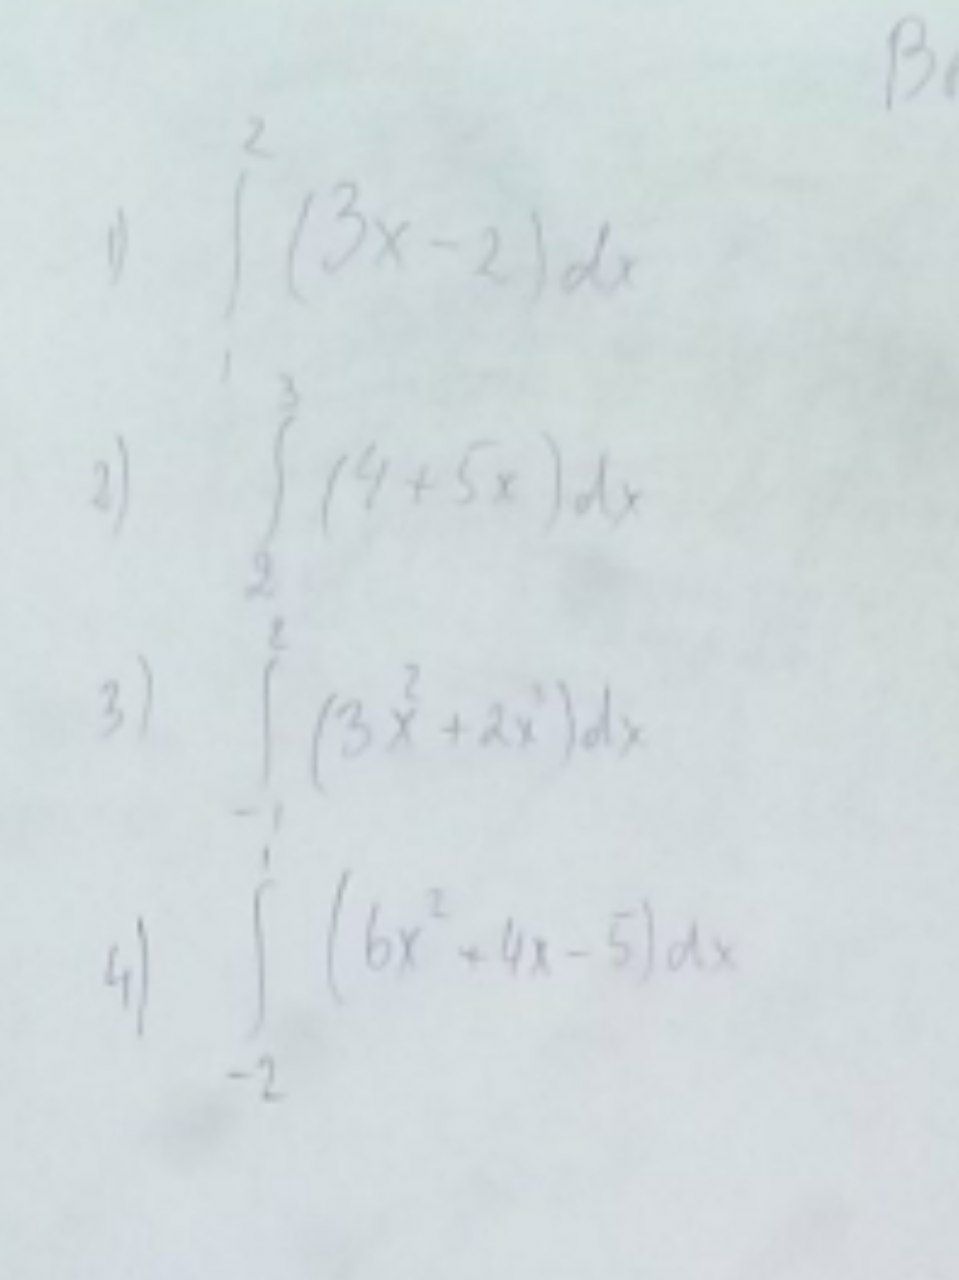 1) ∫₁² (3x-2)dx
2) ∫₂³ (4+5x)dx
3) ∫₋₁² (3x²+2x)dx
4) ∫₋₂¹ (6x²+4x-5)dx